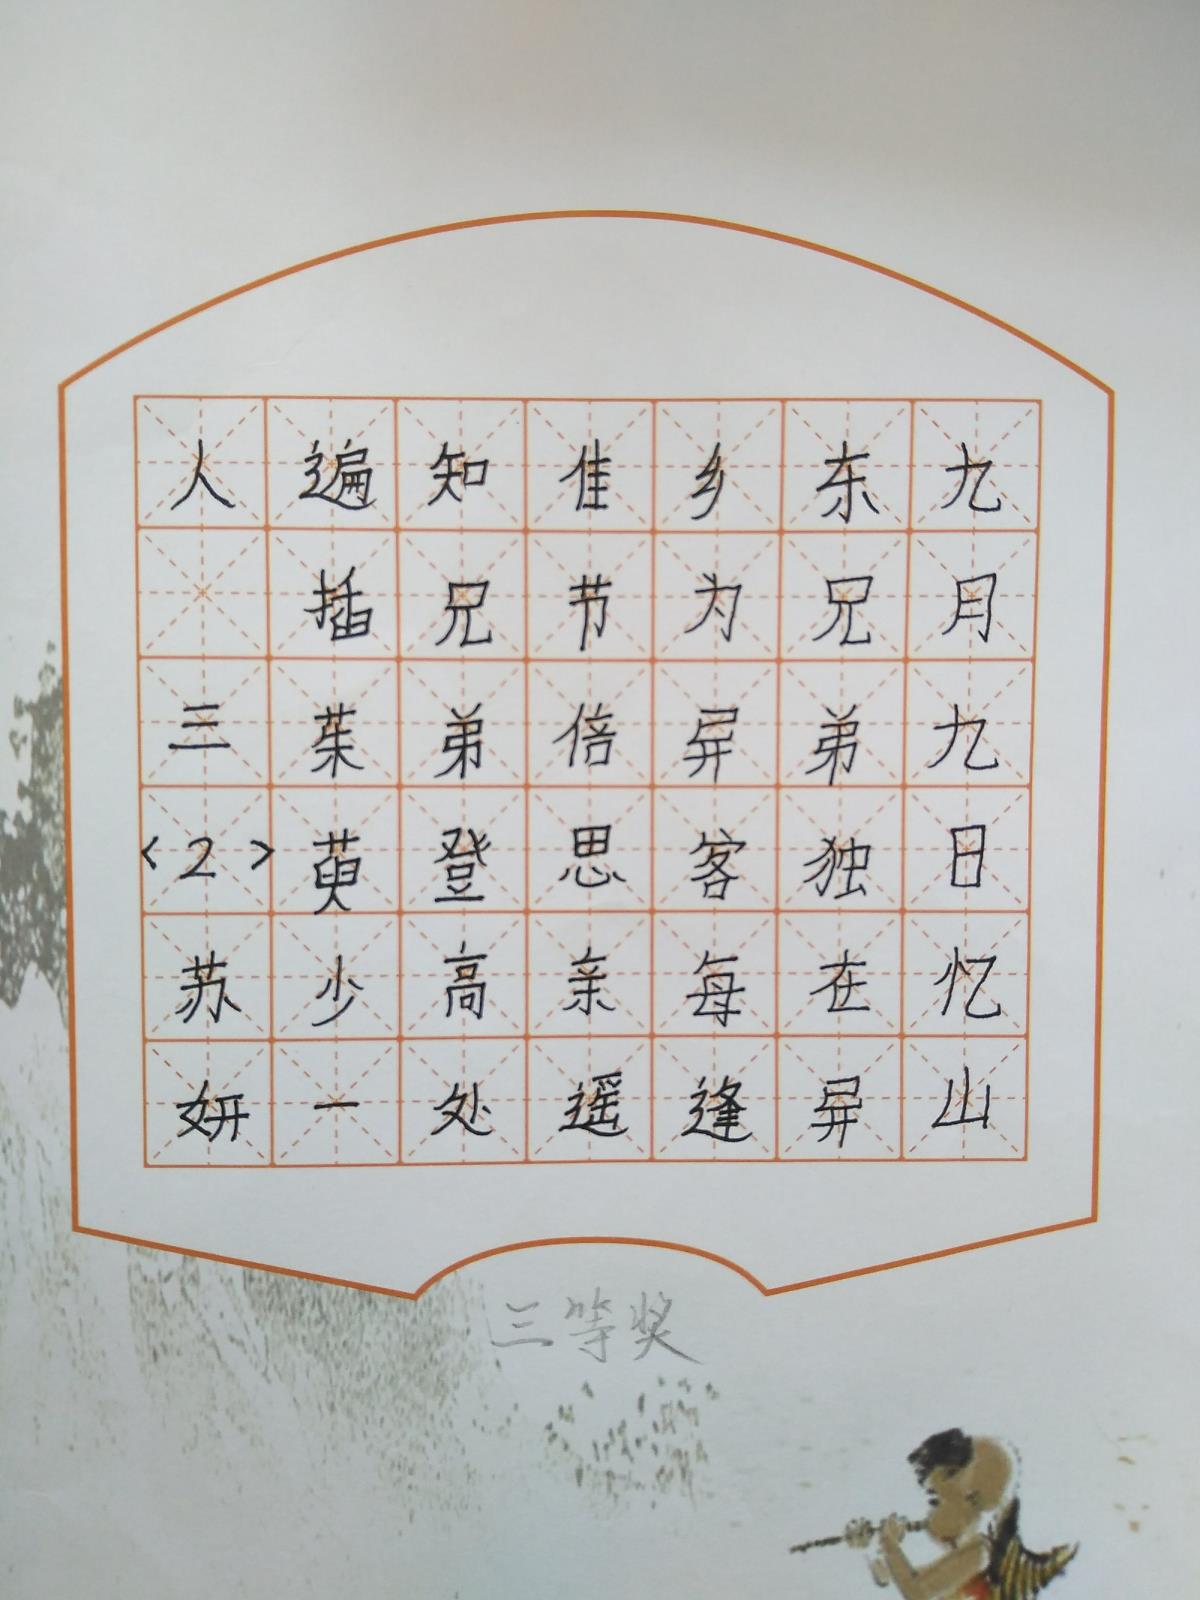 九月九日忆山
东兄弟独在异
乡为异客每逢
佳节倍思亲遥
知兄弟登高处
遍插茱萸少一
人三<2>苏妍
三等奖